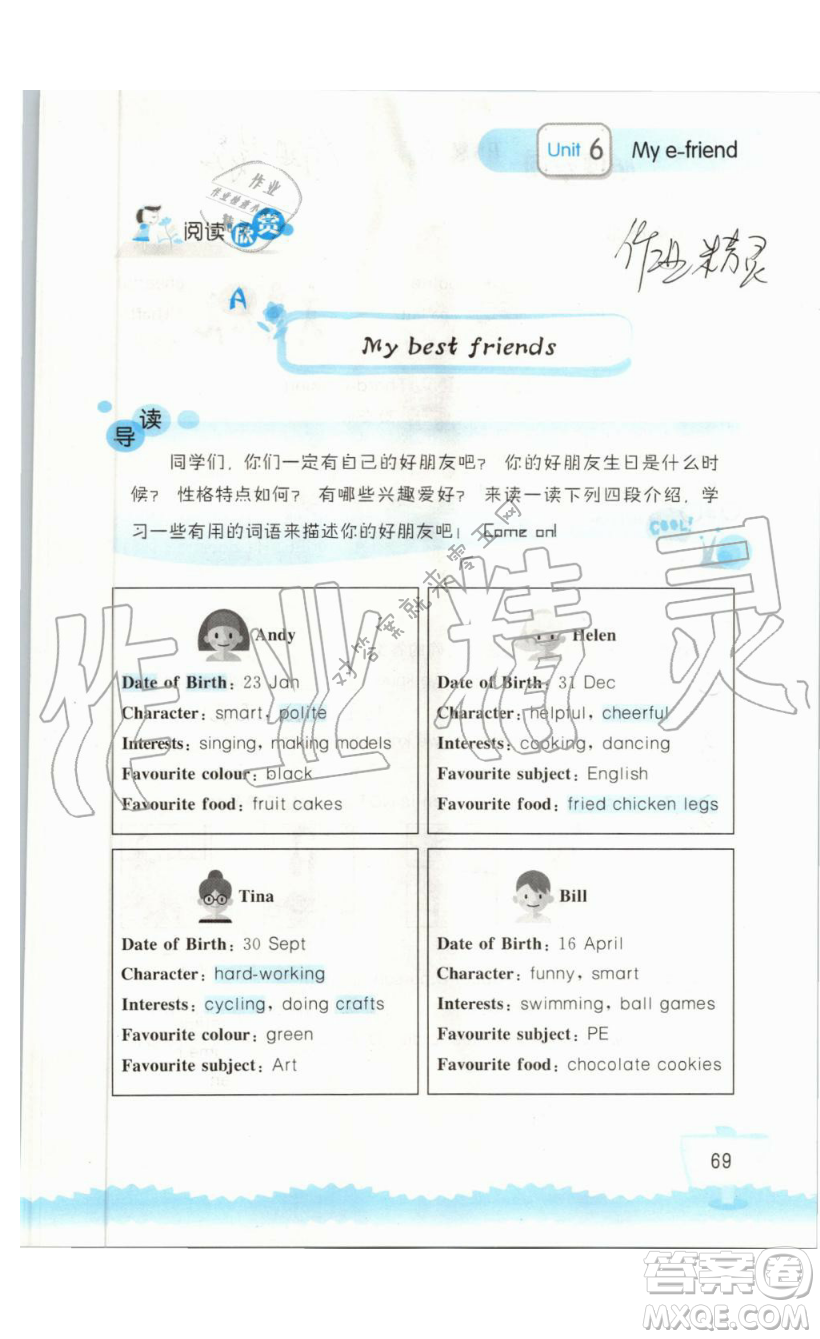 Unit 6 My e-friend
作业
阅读欣赏
作业精灵
A
My best friends
导读
同学们，你们一定有自己的好朋友吧？ 你的好朋友生日是什么时
候？ 性格特点如何？ 有哪些兴趣爱好？ 来读一读下列四段介绍，学
习一些有用的词语来描述你的好朋友吧！ Come on!
COOL!
对答案就来零五网
作业精灵
Andy
Date of Birth：23 Jan
Character：smart，polite
Interests：singing，making models
Favourite colour：black
Favourite food：fruit cakes
Helen
Date of Birth：31 Dec
Character：helpful，cheerful
Interests：cooking，dancing
Favourite subject：English
Favourite food：fried chicken legs
Tina
Date of Birth：30 Sept
Character：hard-working
Interests：cycling，doing crafts
Favourite colour：green
Favourite subject：Art
Bill
Date of Birth：16 April
Character：funny，smart
Interests：swimming，ball games
Favourite subject：PE
Favourite food：chocolate cookies
69
答案卷
MXQE.COM